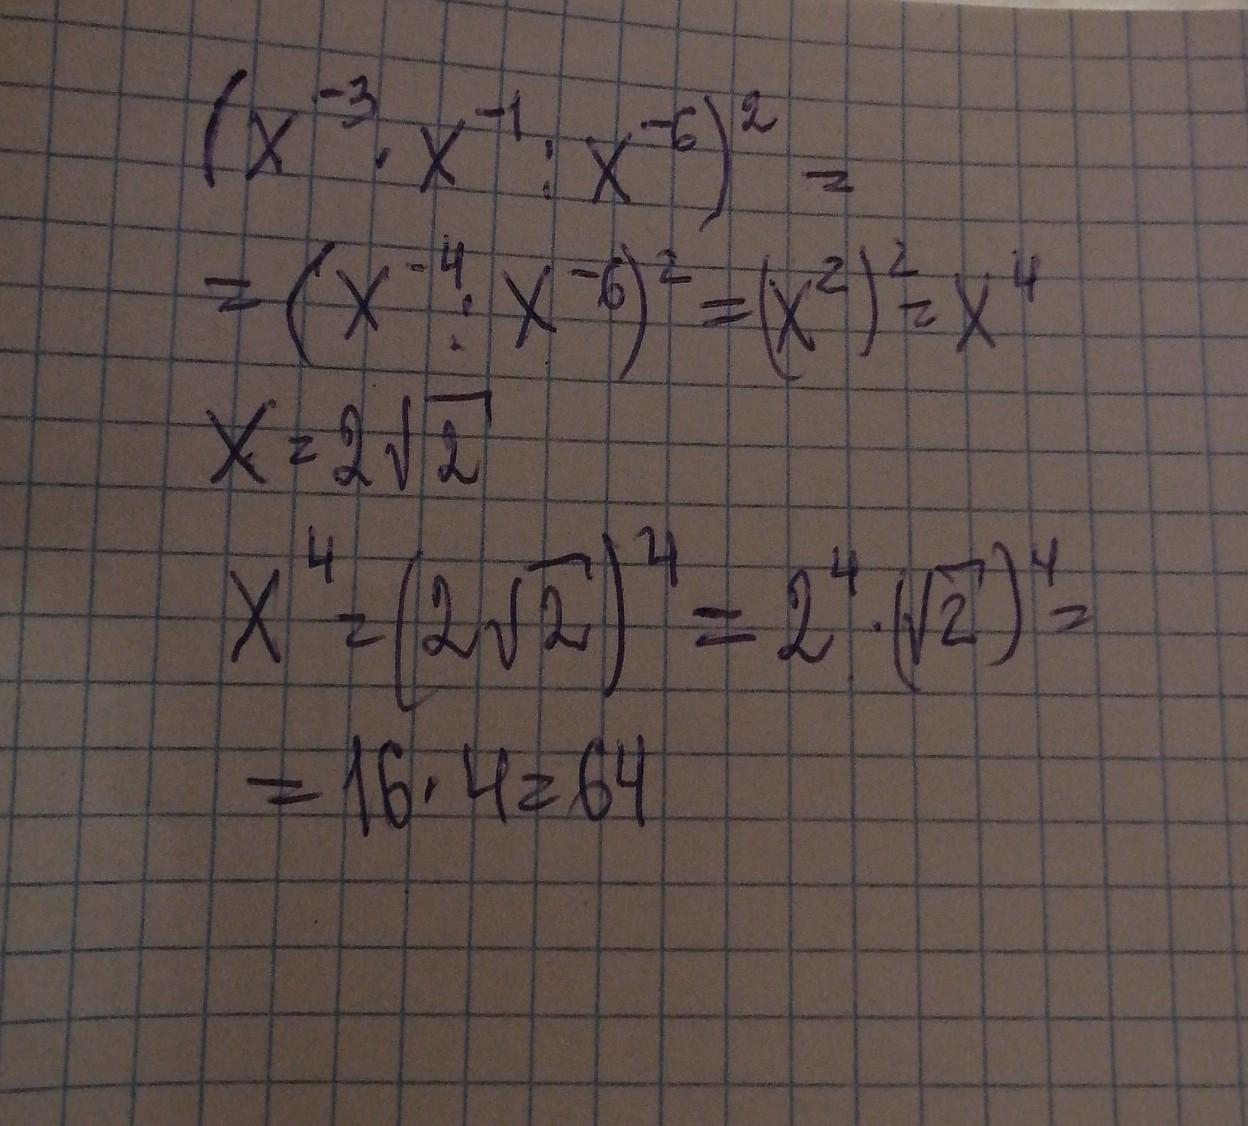 (x⁻³ · x⁻¹ : x⁻⁶)² =
= (x⁻⁴ : x⁻⁶)² = (x²)² = x⁴
x = 2√2
x⁴ = (2√2)⁴ = 2⁴ · (√2)⁴ =
= 16 · 4 = 64